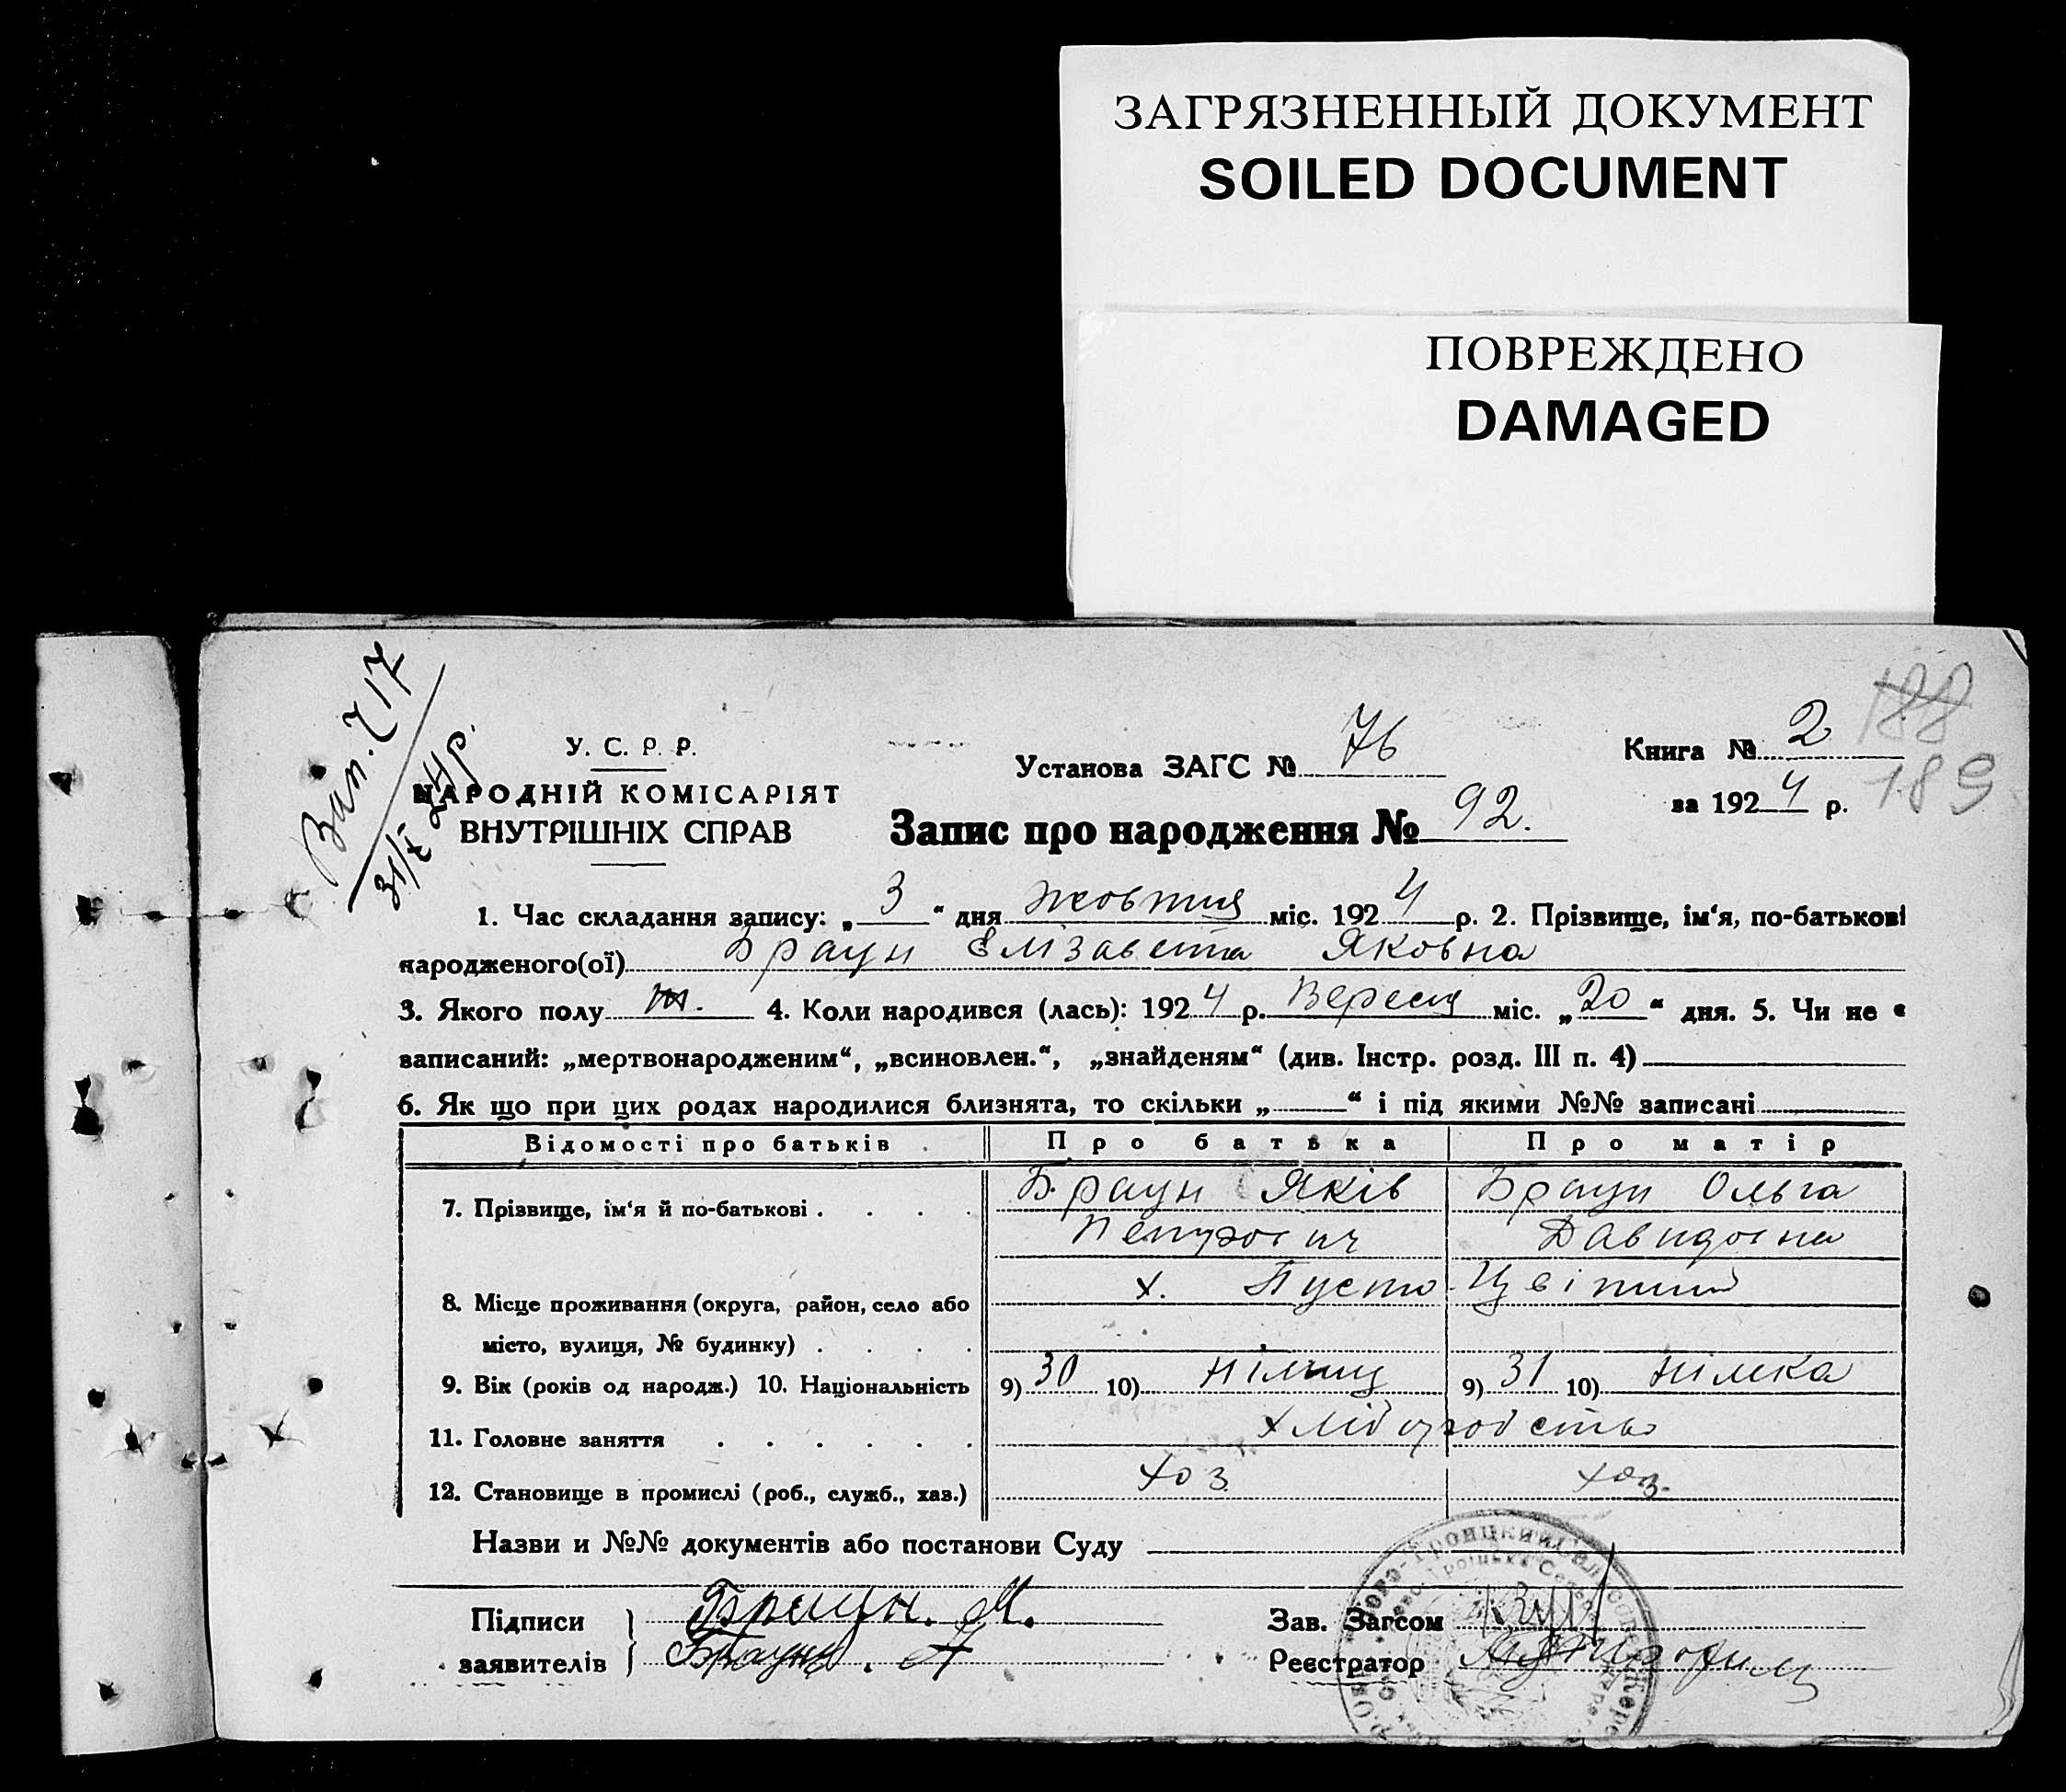 ЗАГРЯЗНЕННЫЙ ДОКУМЕНТ
SOILED DOCUMENT
ПОВРЕЖДЕНО
DAMAGED
188
189
У. С. Р. Р.
НАРОДНІЙ КОМІСАРІЯТ
ВНУТРІШНІХ СПРАВ
Установа ЗАГС № 76
Книга № 2
за 1924 р.
Запис про народження № 92.
1. Час складання запису: „3“ дня жовтня міс. 1924 р. 2. Прізвище, ім‘я, по-батькові
народженого(ої) Браун Елізавета Яковна
3. Якого полу 4. Коли народився (лась): 1924 р. Вересня міс. „20“ дня. 5. Чи не є
записаний: „мертвонародженим“, „всиновлен.“, „знайденям“ (див. Інстр. розд. III п. 4)
6. Як що при цих родах народилися близнята, то скільки „ “ і під якими №№ записані
Відомості про батьків . Про батька Про матір
7. Прізвище, ім‘я й по-батькові . . . . Браун Яків Браун Ольга
Петрович Давидовна
8. Місце проживання (округа, район, село або х. Пусто-
місто, вулиця, № будинку) . . . .
9. Вік (років од народж.) 10. Національність 9) 30 10) німець 9) 31 10) німка
11. Головне заняття . . . . . . хліборобство
12. Становище в промислі (роб., служб., хаз.) хоз хоз.
Назви и №№ документів або постанови Суду
Підписи заявителів Браун. М.
Браун. А
Зав. Загсом
Реєстратор